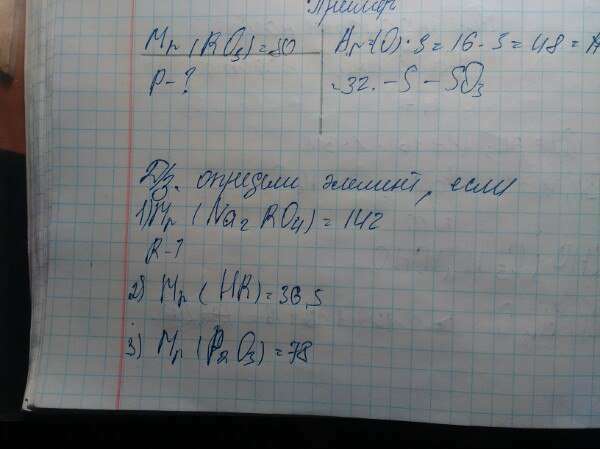 Пример
Mr (RO3) = 80
Ar(O)·3 = 16·3 = 48 = A
R-?
=32. - S - SO3
Дз. определи элемент, если
1) Mr (Na2RO4) = 142
R-?
2) Mr (HR) = 36,5
3) Mr (R2O3) = 78